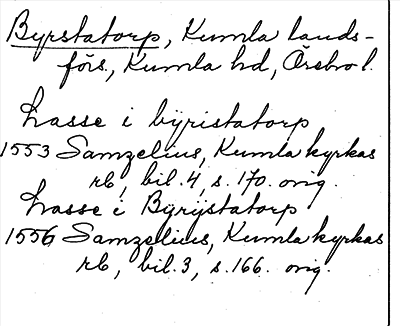 Byrstatorp, Kumla lands-
förs., Kumla hd, Örebro l.
Lasse i byristatorp
1553 Samzelius, Kumla kyrkas
rb, bil. 4, s. 170. orig.
Lasse i Byrijstatorp
1556 Samzelius, Kumla kyrkas
rb, bil. 3, s. 166. orig.